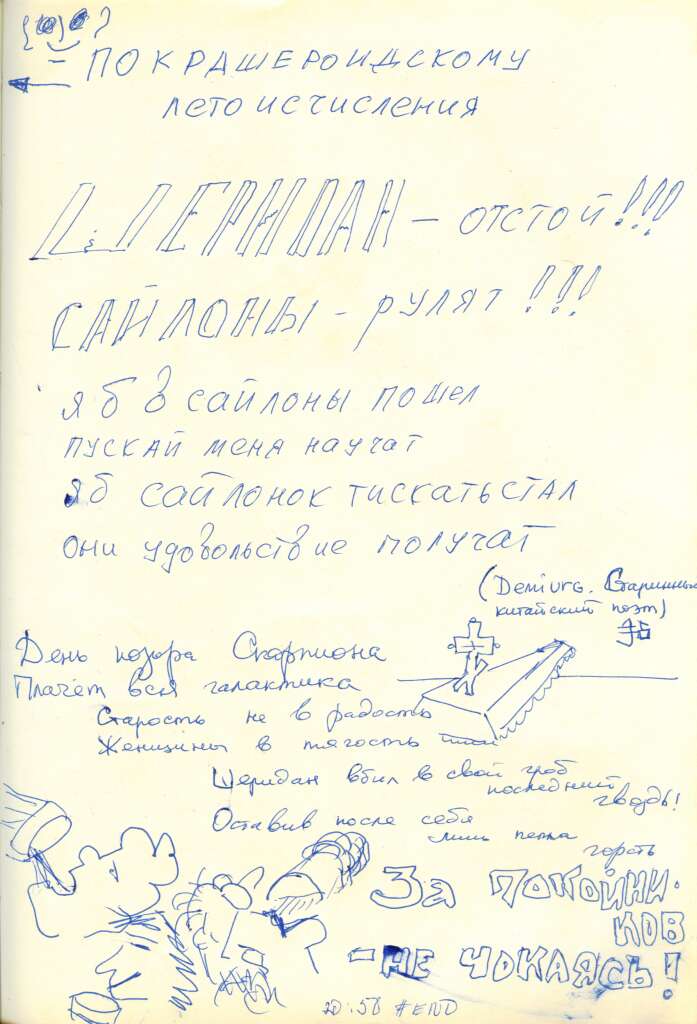 ПО КРАШЕРОИДСКОМУ
ЛЕТОИСЧИСЛЕНИЯ
ШЕРИДАН – ОТСТОЙ!!!
САЙЛОНЫ – РУЛЯТ!!!
Я б в сайлоны пошел
ПУСКАЙ МЕНЯ НАУЧАТ
Я б САЙЛОНОК ТИСКАТЬ СТАЛ
ОНИ УДОВОЛЬСТВИЕ ПОЛУЧАТ
(Demiurg. Старинный
китайский поэт)
День позора Скорпиона
Плачет вся галактика
Старость не в радость
Женщины в тягость
Шеридан вбил в свой гроб
последний
гвоздь!
Оставив после себя
лишь пепла
горсть
За ПОКОЙНИ-
КОВ
–НЕ ЧОКАЯСЬ!
20:56 #END